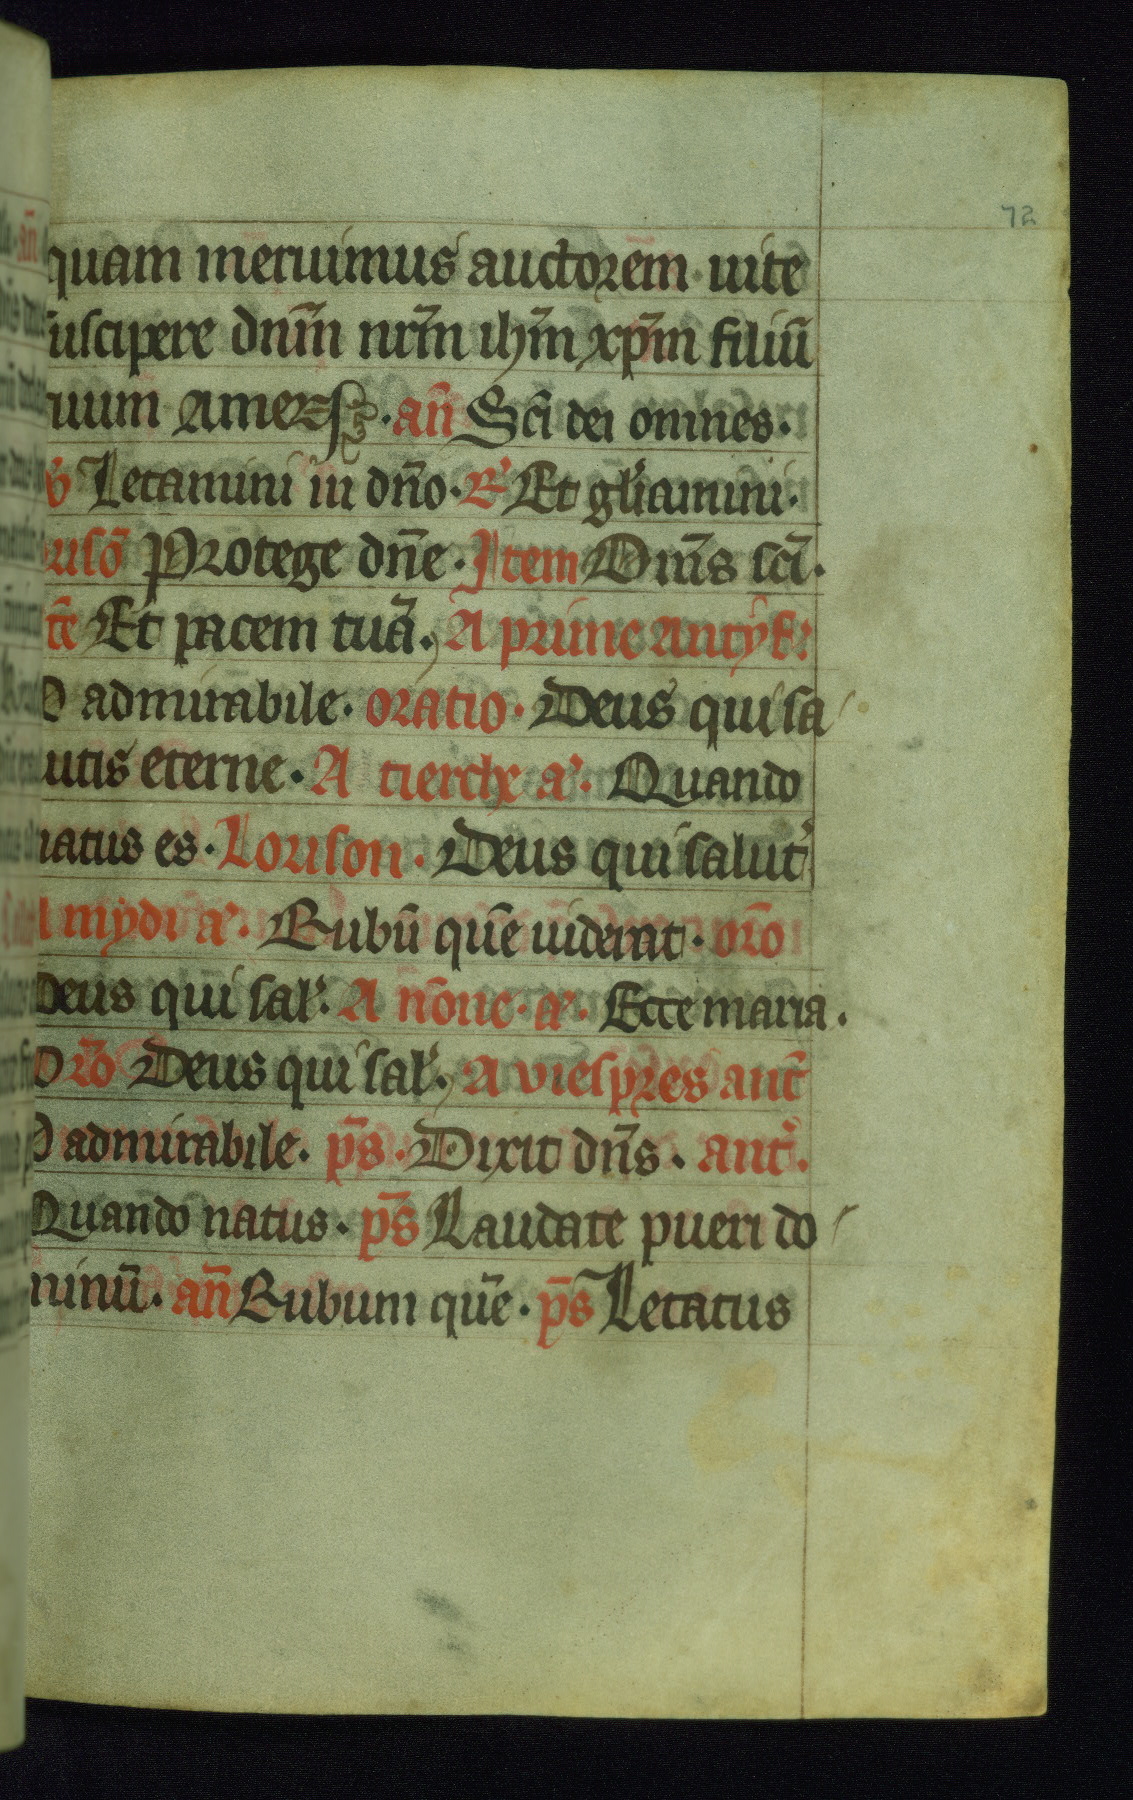 72
quam meruimus auctorem uite
uscipere dnm̄ nrm̄ ihm̄ xpm̄ filiū
uum Amen. an̄ Sci dei omnes.
v̄ Letamini in dn̄o. R' Et gl'iamini.
Protege dn̄e. Item Om̄s sci.
Et pacem tuā. A prime
O admirabile. oratio. Deus qui sa
utis eterne. A tierche a'. Quando
natus es. Lorison. Deus qui salut'
mydi a'. Rubū quē uiderat. oro
Deus qui sal'. A none. a'. Ecce maria.
Oro Deus qui sal'. A viespres ant'
O admirabile. ps̄. Dixit dn̄s. ant'.
Quando natus. ps̄ Laudate pueri do
minū. an̄ Rubum quē. ps̄ Letatus